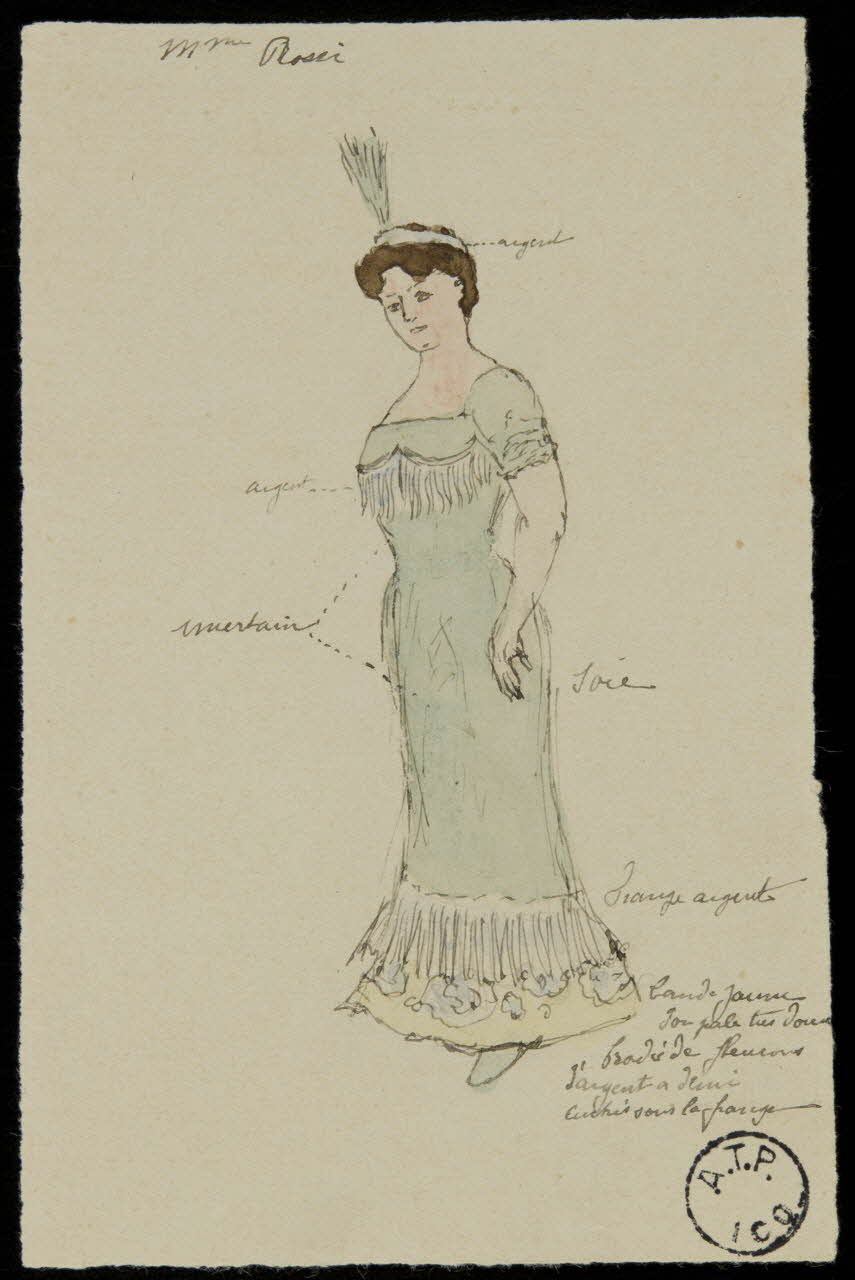 Mme Rossi
argent
argent
incertain
Soie
frange argent
bande jaune
d'or pale tres doux
brodée de fleurons
d'argent a demi
cachés sous la frange
A.T.P.
ICO